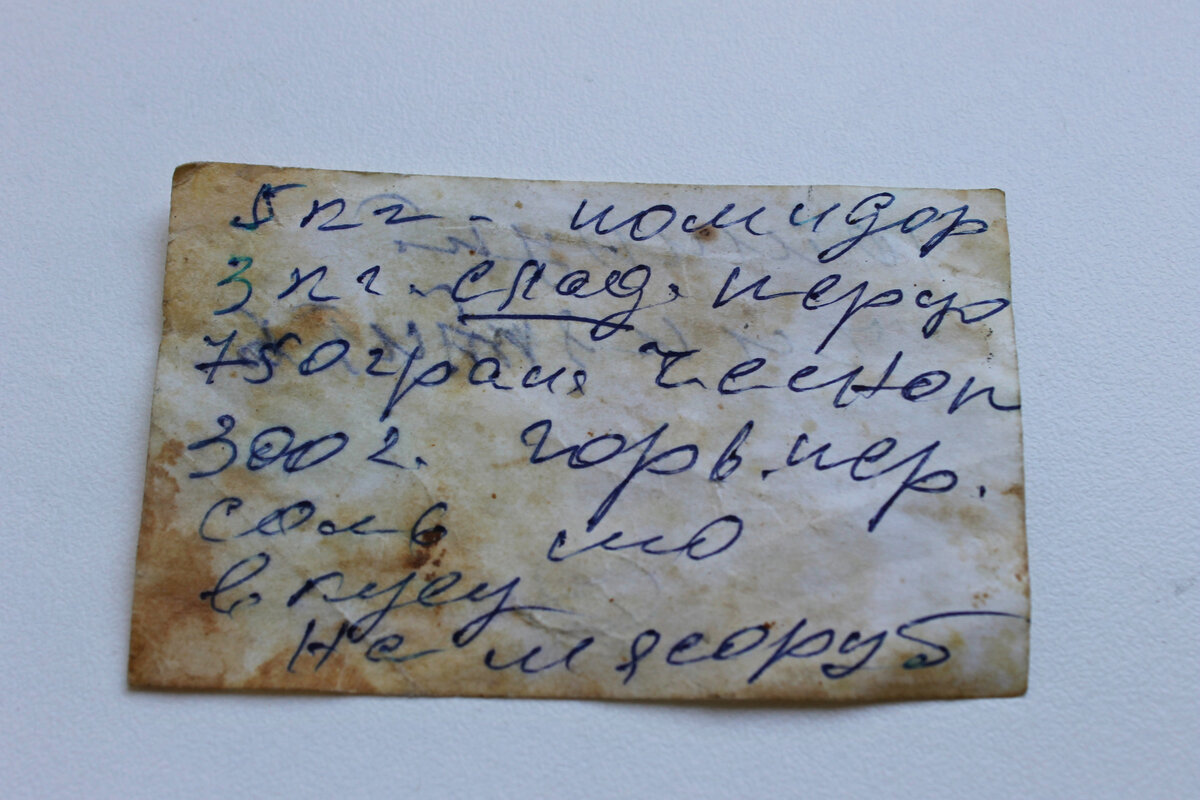 5 кг - помидор
3 кг. слад. перца
750 грам. Чеснок
300 г. горьв. пер.
соль по
вкусу
на мясоруб